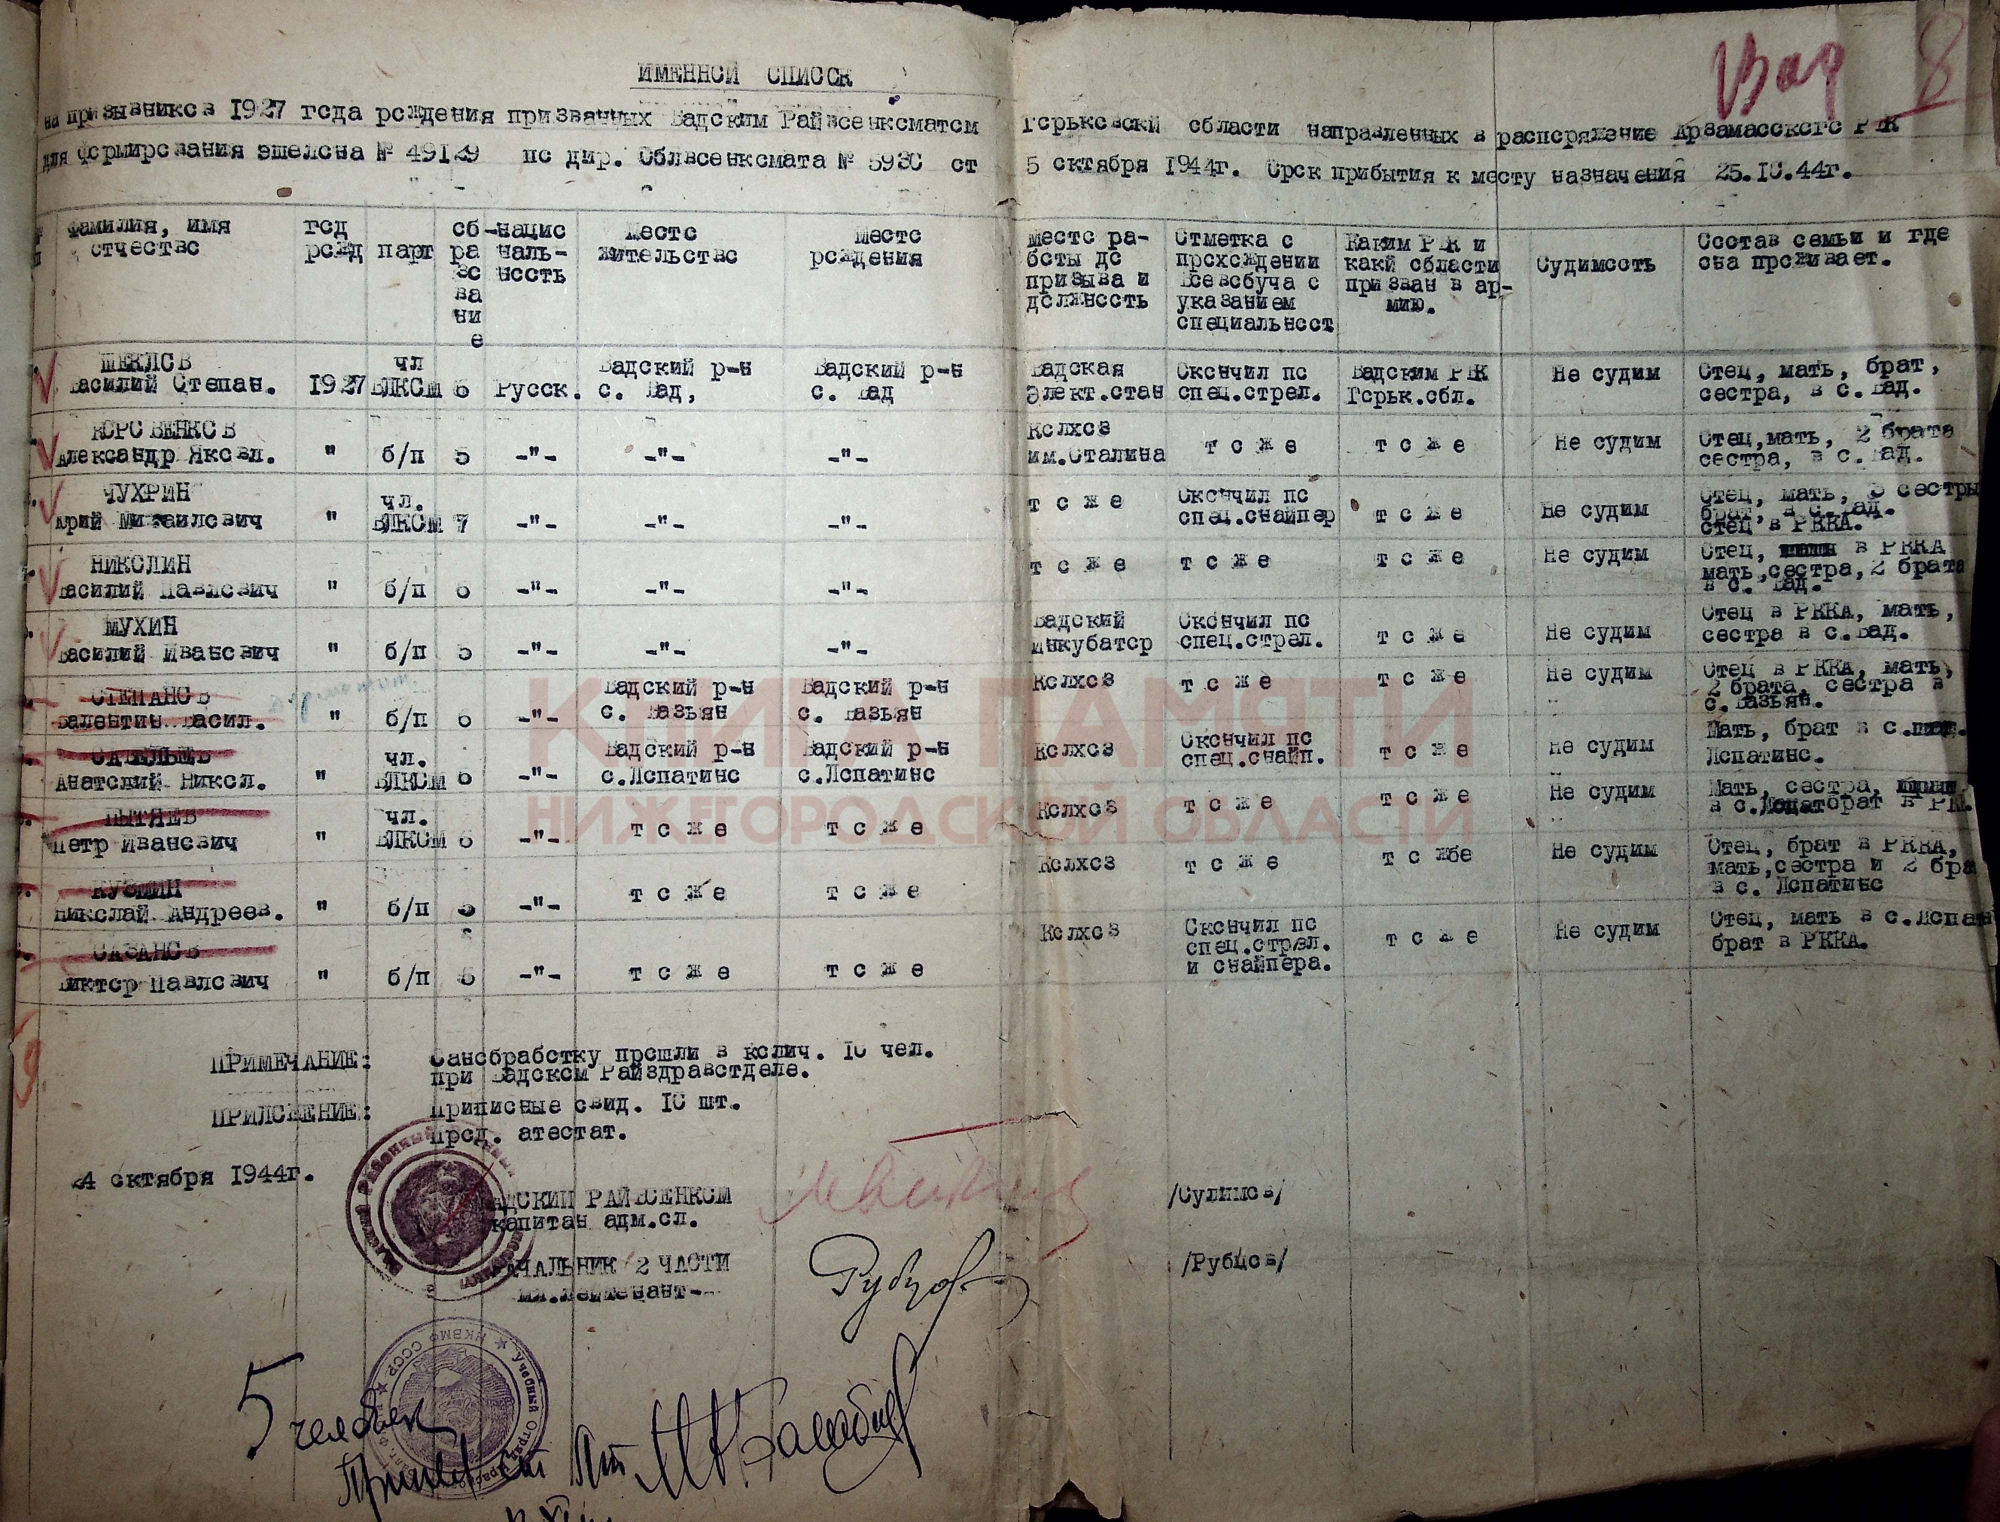 Вад 8
ИМЕННОЙ СПИСОК
на призывников 1927 года рождения призванных Вадским Райвоенкоматом Горьковской области направленных в распоряжение Арзамасского РВК
для формирования эшелона № 49129 по дир. Облвоенкомата № 5930 от 5 октября 1944г. Срок прибытия к месту назначения 25.10.44г.
Фамилия, имя отчество | год рожд | парт | об ра зо ва ни е | нацио наль- ность | Место жительство | Место рождения | Место ра- боты до призыва и должность | Отметка о прохождении Всевобуча с указанием специальност | Каким РВК и какй области призван в ар- мию. | Судимость | Состав семьи и где она проживает.
ШЕКЛОВ Василий Степан. | 1927 | чл ВЛКСМ | 6 | Русск. | Вадский р-н с. Вад, | Вадский р-н с. Вад | Вадская Элект.стан | Окончил по спец.стрел. | Вадским РВК Горьк.обл. | Не судим | Отец, мать, брат, сестра, в с.Вад.
КОРОВЕНКОВ Александр Яковл. | " | б/п | 5 | -"- | -"- | -"- | Колхоз им.Сталина | т о ж е | т о ж е | Не судим | Отец,мать, 2 брата сестра, в с.Вад.
ЧУХРИН Юрий Михаилович | " | чл. ВЛКСМ | 7 | -"- | -"- | -"- | т о ж е | Окончил по спец.снайпер | т о ж е | Не судим | Отец, мать, 3 сестры брат, в с.Вад. отец в РККА.
НИКОЛИН Василий Павлович | " | б/п | 6 | -"- | -"- | -"- | т о ж е | т о ж е | т о ж е | Не судим | Отец, в РККА мать,сестра,2 брата в с. Вад.
МУХИН Василий Иванович | " | б/п | 5 | -"- | -"- | -"- | Вадский инкубатор | Окончил по спец.стрел. | т о ж е | Не судим | Отец в РККА, мать, сестра в с.Вад.
СТЕПАНОВ Валентин Васил. | " | б/п | 6 | -"- | Вадский р-н с. Вазьян | Вадский р-н с. Вазьян | Колхоз | т о ж е | т о ж е | Не судим | Отец в РККА, мать, 2 брата, сестра в с.Вазьян.
САВЕЛЬЕВ Анатолий Никол. | " | чл. ВЛКСМ | 6 | -"- | Вадский р-н с.Лопатино | Вадский р-н с.Лопатино | Колхоз | Окончил по спец.снайп. | т о ж е | Не судим | Мать, брат в с. Лопатино.
ПЫТЯЕВ Петр Иванович | " | чл. ВЛКСМ | 6 | -"- | т о ж е | т о ж е | Колхоз | т о ж е | т о ж е | Не судим | Мать, сестра, в с.Лопат брат в РК.
КУЗМИН Николай Андреев. | " | б/п | 5 | -"- | т о ж е | т о ж е | Колхоз | т о ж е | т о жбе | Не судим | Отец, брат в РККА, мать,сестра и 2 бра в с. Лопатино
САЗАНОВ Виктор Павлович | " | б/п | 5 | -"- | т о ж е | т о ж е | Колхоз | Окончил по спец.стрел. и снайпера. | т о ж е | Не судим | Отец, мать в с.Лопат брат в РККА.
КНИГА ПАМЯТИ
НИЖЕГОРОДСКОЙ ОБЛАСТИ
ПРИМЕЧАНИЕ: Санобработку прошли в колич. 10 чел.
при Вадском Райздравотделе.
ПРИЛОЖЕНИЕ: Приписные свид. 10 шт.
прод. атестат.
24 октября 1944г.
ВАДСКИЙ РАЙВОЕНКОМ
капитан адм.сл. /Сулимов/
НАЧАЛЬНИК 2 ЧАСТИ
мл.лейтенант- Рубцов /Рубцов/
НКВМФ СССР ★ Учебный Отряд
5 человек
Принял